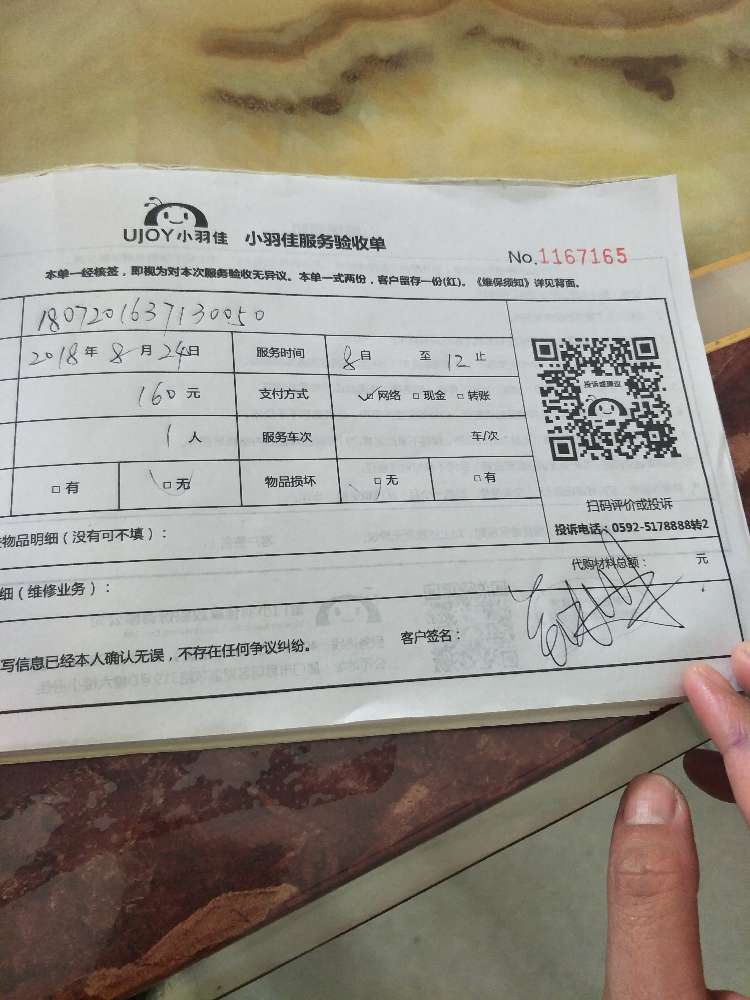 UJOY小羽佳 小羽佳服务验收单
No.1167165
本单一经核签，即视为对本次服务验收无异议。本单一式两份，客户留存一份(红)。《维保须知》详见背面。
1807201637130050
2018年8月24日 服务时间 8自 至12止
160元 支付方式 ☑网络 □现金 □转账
1人 服务车次 车/次
□有 ☑无 物品损坏 ☑无 □有
投诉或建议
扫码评价或投诉
投诉电话：0592-5178888转2
物品明细（没有可不填）：
细（维修业务）： 代购材料总额： 元
写信息已经本人确认无误，不存在任何争议纠纷。 客户签名：